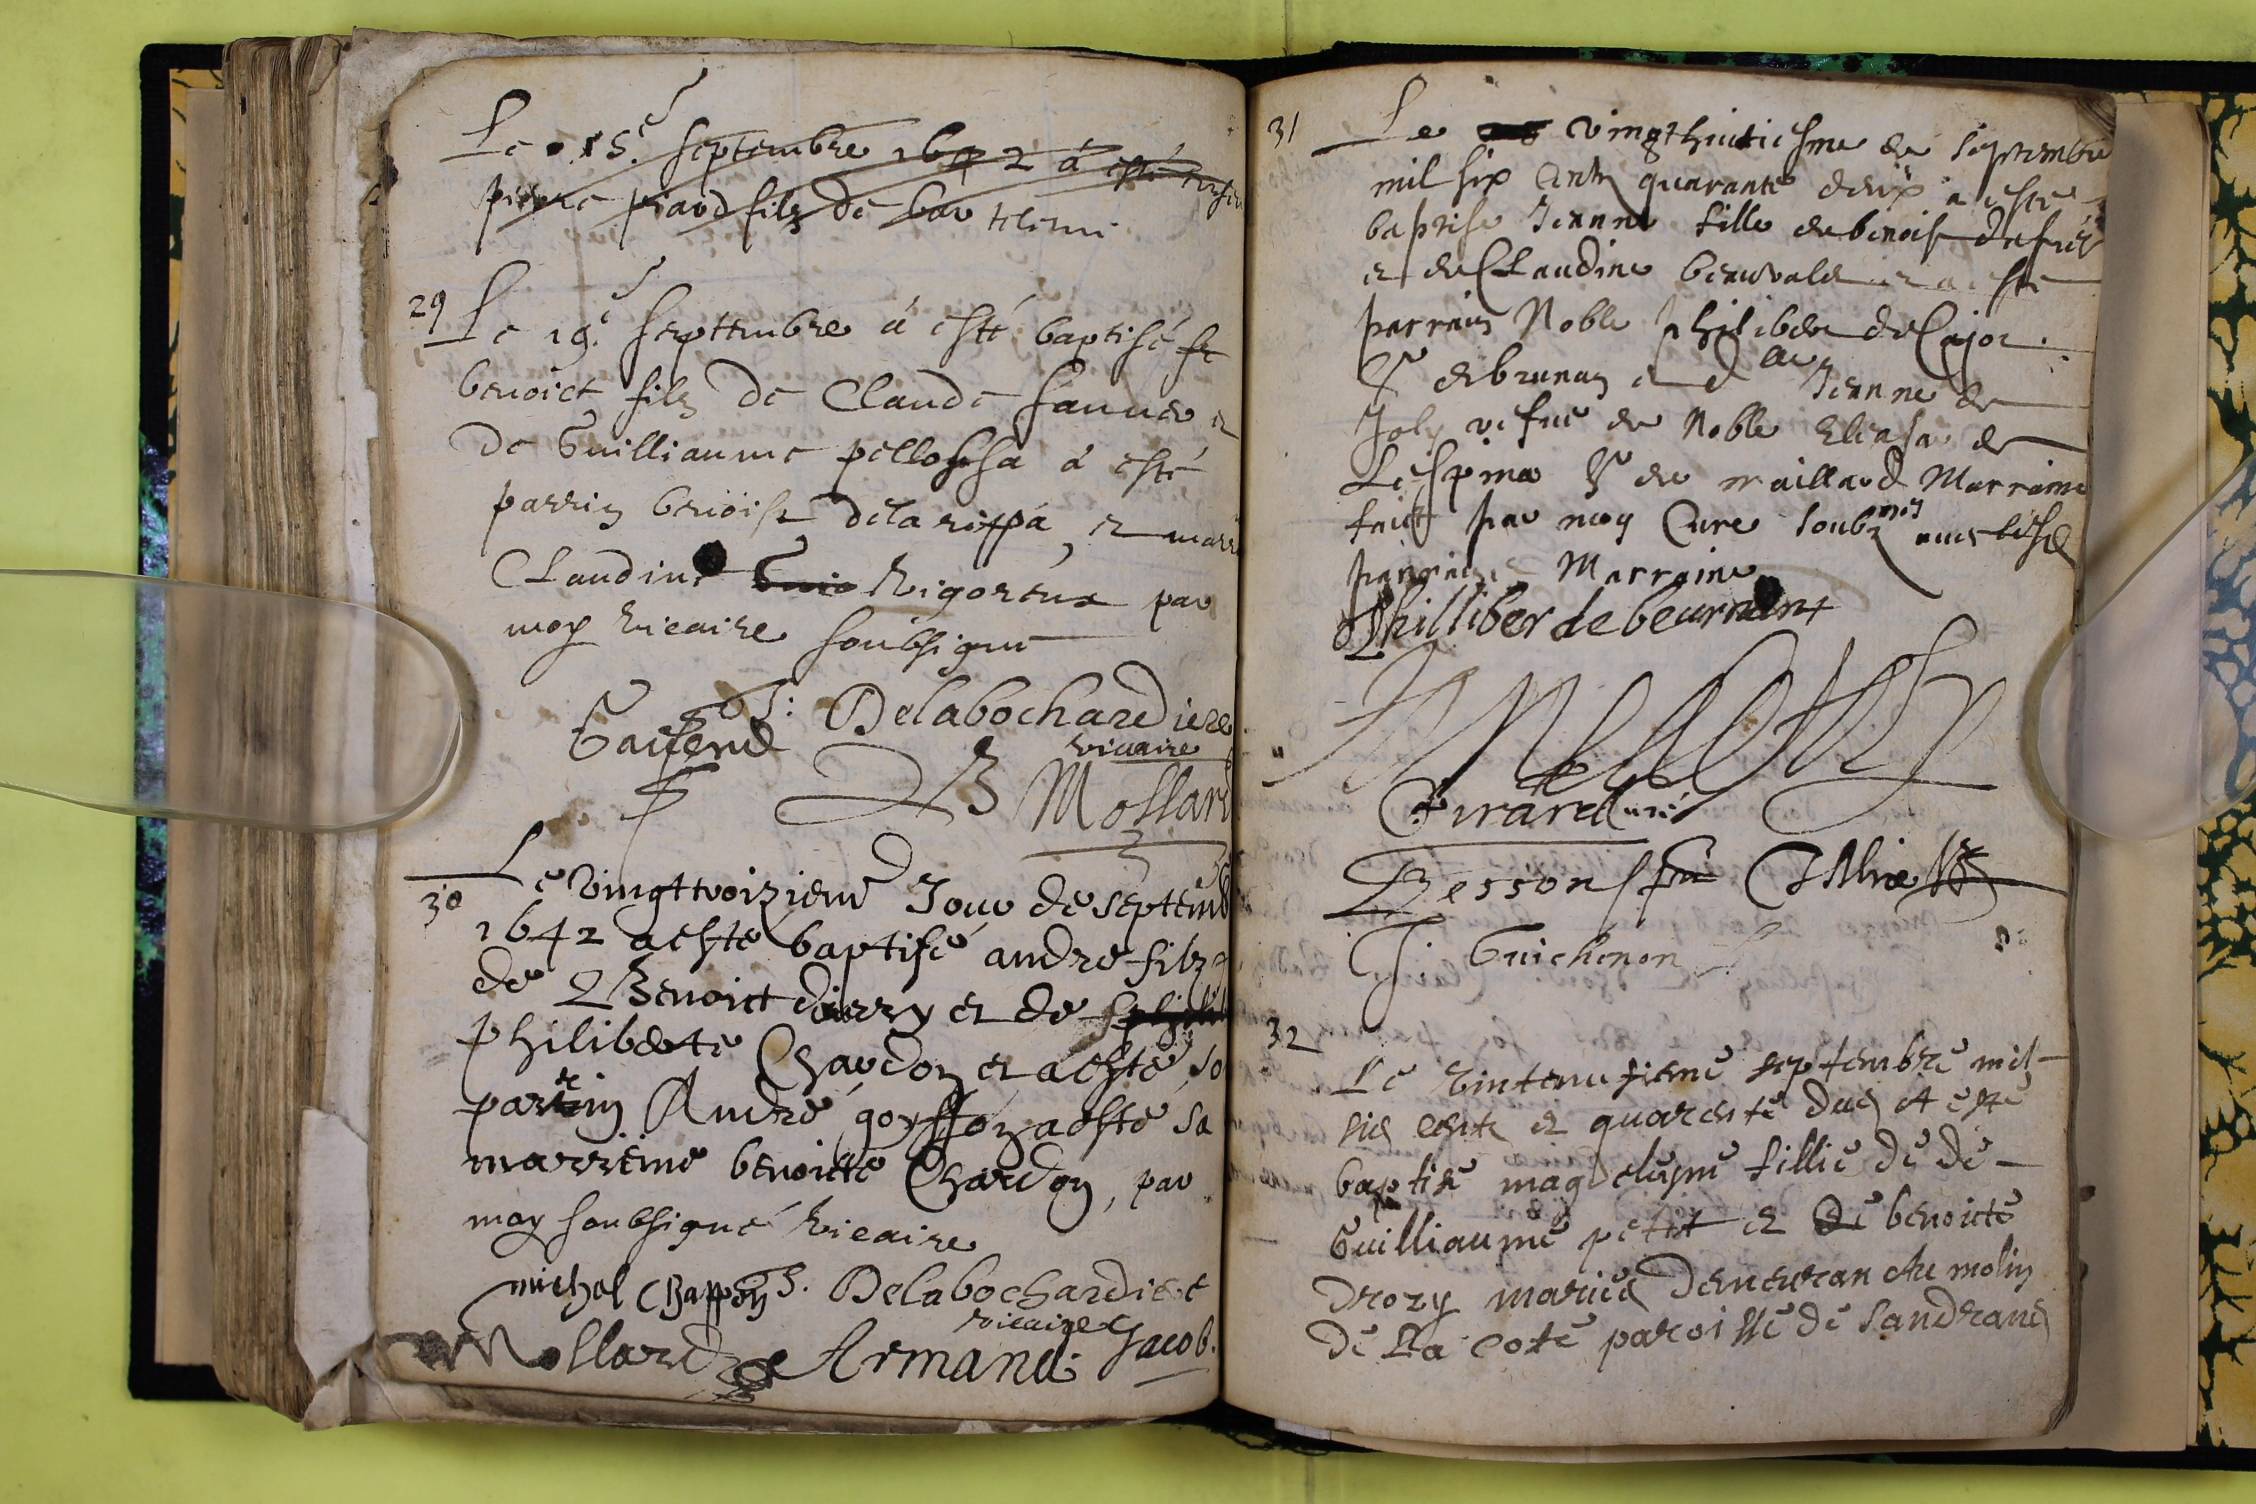 Le 15.e septembre 1642 á esté
pierre piard filz de bar thlemi
29
Le 19.e septembre á esté baptisé
benoict filz de Claude fanner et
de Guilliaume pellossa á esté
parrin benoist delarippa, et marr
Claudine Rigorena par
moy vicaire soubsigné
Delabochardiere
vicaire
B Mollard
30
Le vingt troizieme Jour de septemb
1642 a esté baptisé andre filz
de Benoict durry et de
philiberte Chardon et a esté so
parrin André goyffon a esté sa
marreine benoicte Chardon, par
moy soubsigné vicaire
michel Chappon Delabochardiere
vicaire Jacob.
Mollard Armand
31
Le vingthuictiesme de septembre
mil six cents quarante deux a esté
baptise Jeanne fille de benoist
et de Claudine et a esté
parrain Noble philiber de Cajot
Sr de brunan et dlle Jeanne de
Joly vefue de Noble Eleasar de
Lespina Sr de maillard Marraine
faict par moy Cure soubz
parrain Marraine
Philliber de beurnant
Girard curé
Besson
Guichenon
32
Le vintenufieme septembre mil
sis cents et quarente dues A esté
baptise magdeleyne fillie de de
Guilliaume petit et de benoicte
Drozy mariés demeuran Au molin
de La cote paroisse de sandrans